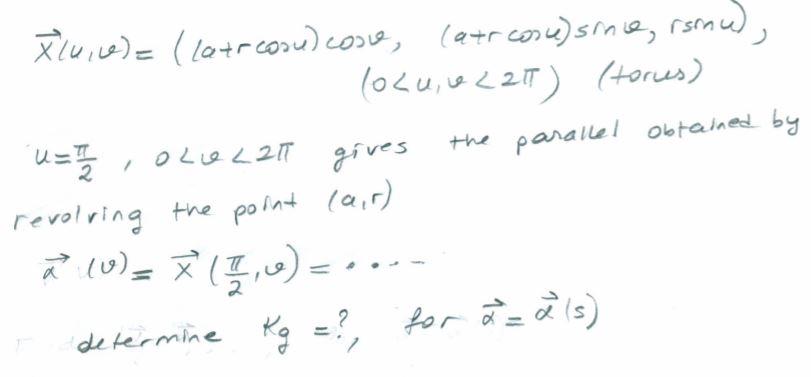 x⃗(u,v) = ((a+r cosu) cosv, (a+r cosu) sinv, r sinu),
(0<u,v<2π) (torus)
u=π/2, 0<v<2π gives the parallel obtained by
revolving the point (a,r)
α⃗(v) = x⃗(π/2,v) = .....
determine Kg =?, for α⃗ = α⃗(s)